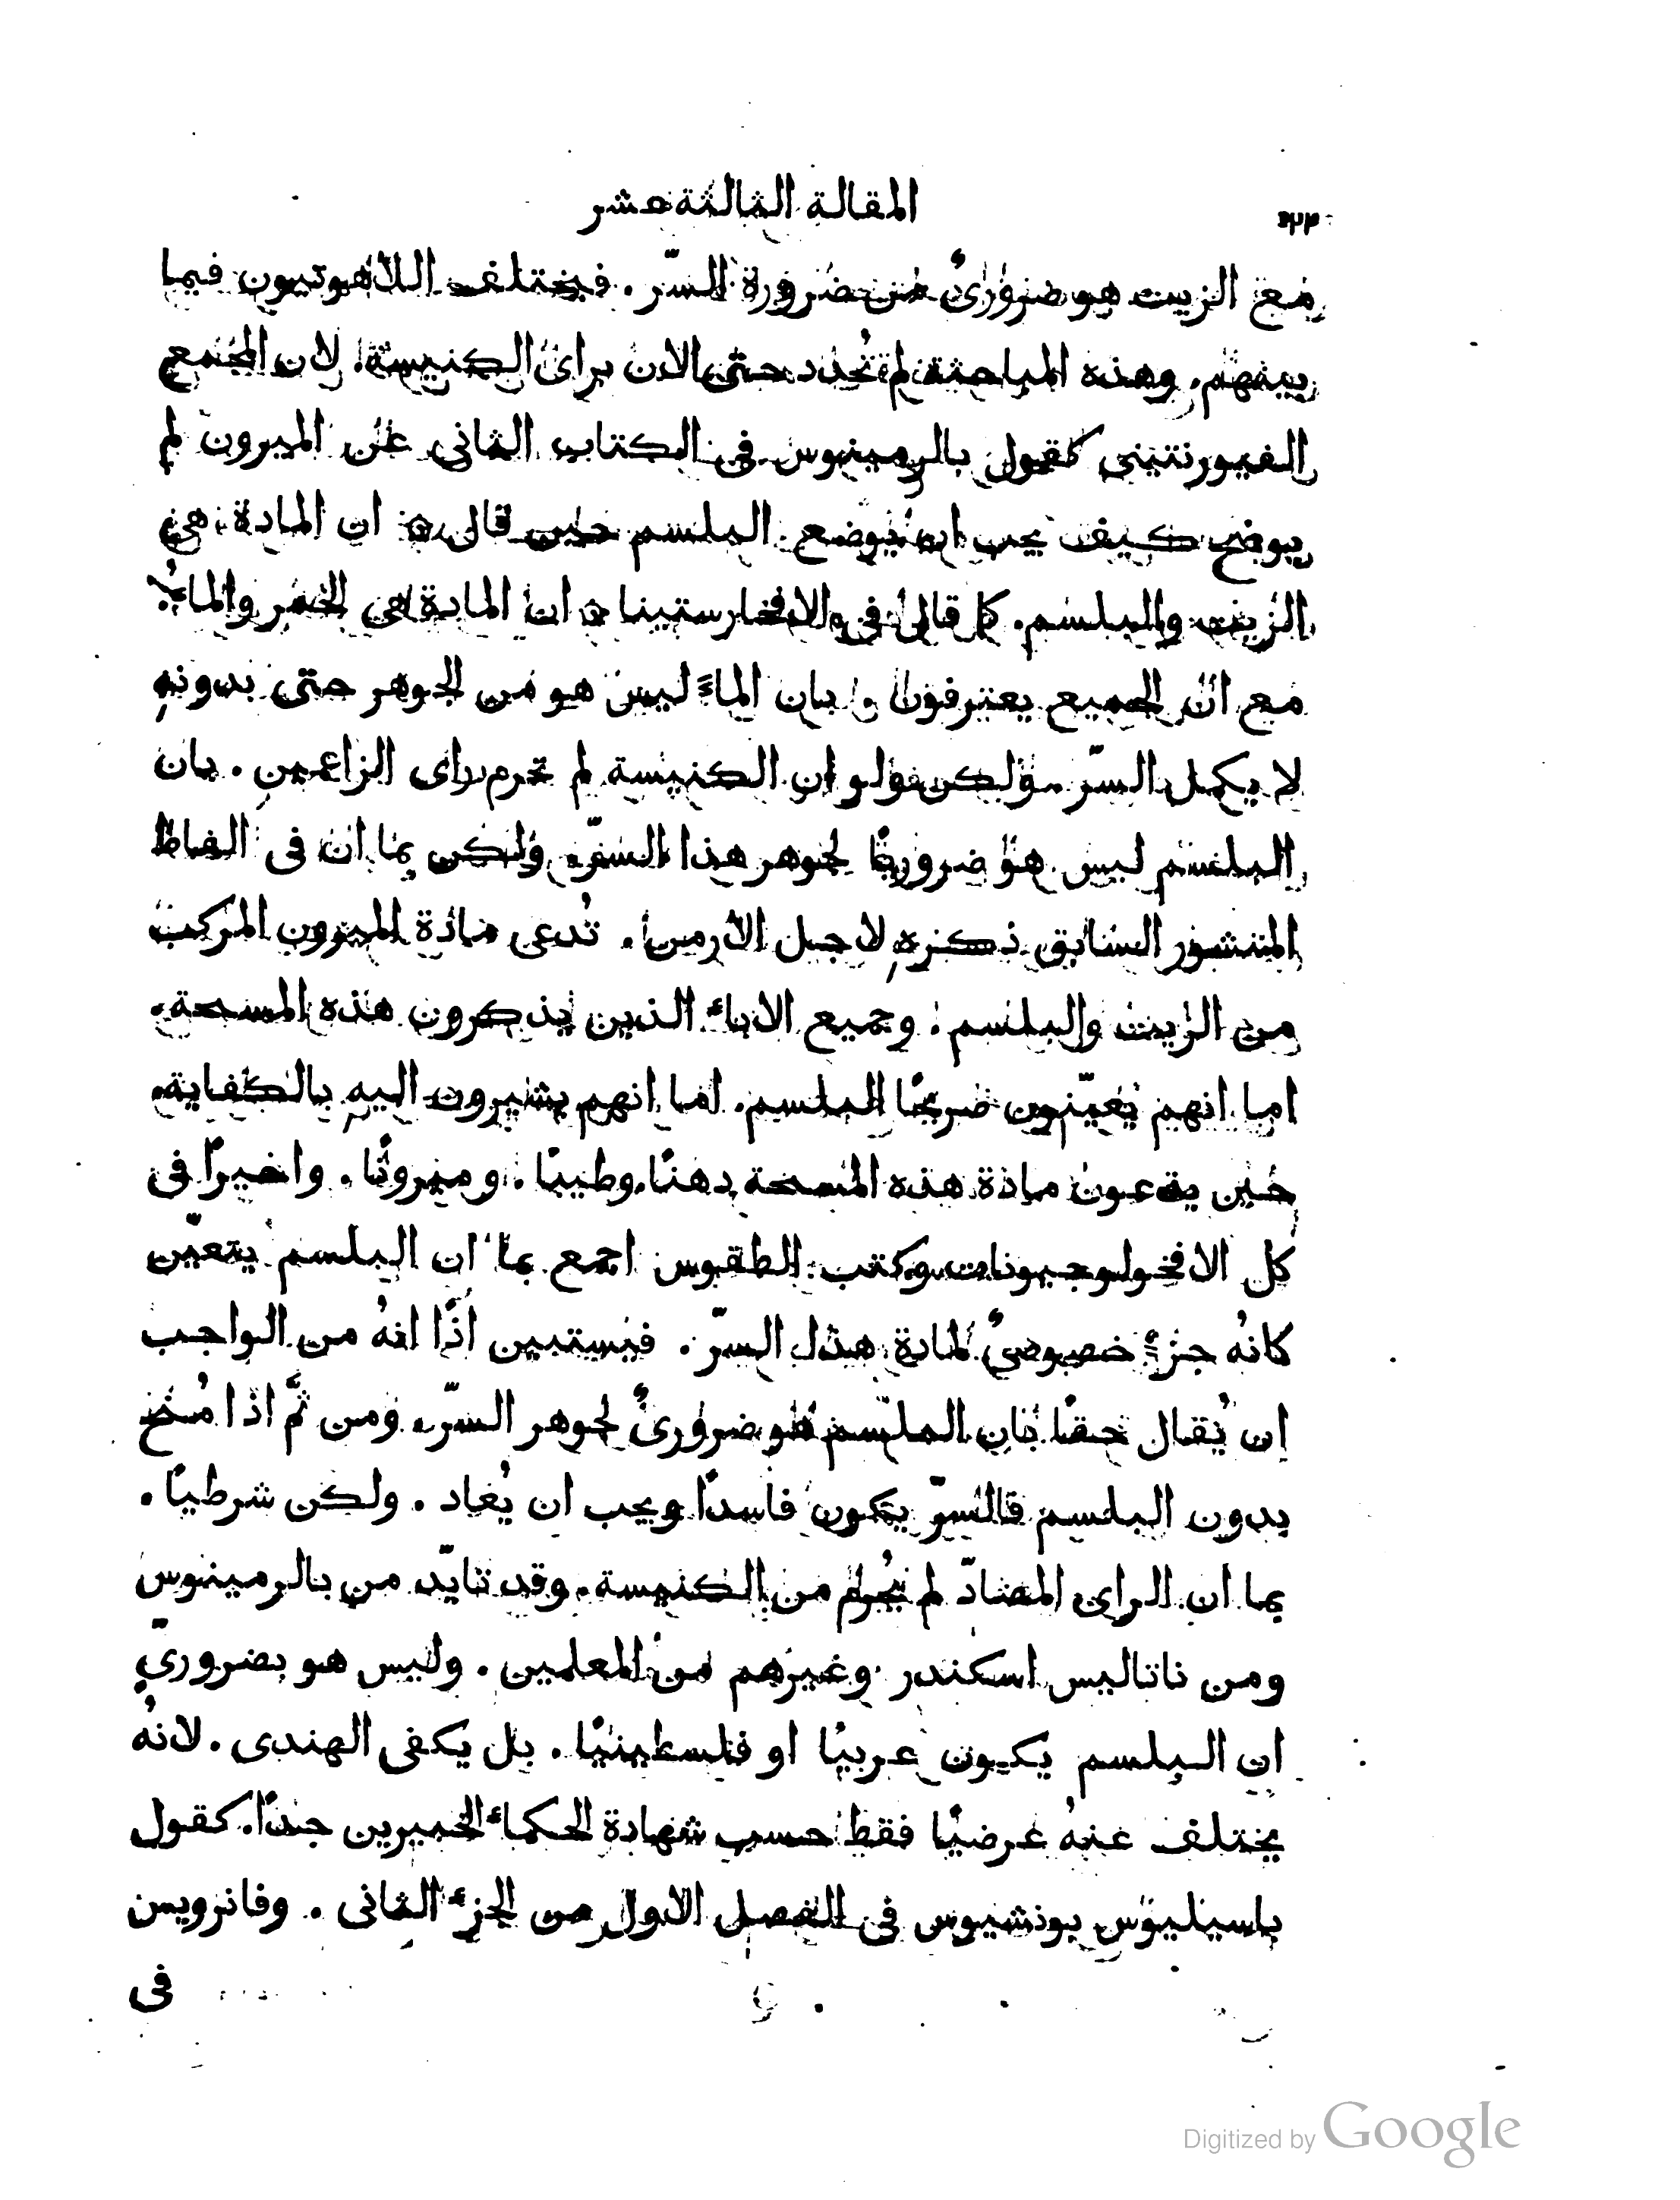 المقالة الثالثة عشر
مع الزيت هو ضرورىٌ من ضرورة السرّ . فيختلف اللاهوتيون فيما
بينهم . وهذه المباحثة لم تُحدد حتى الان براى الكنيسة . لان المجمع
الفيورنتينى كقول بالرمينوس فى الكتاب الثانى عن الميرون لم
يوضح كيف يجب ان يوضع البلسم حين قال ۞ ان المادة هى
الزيت والبلسم . كما قال فى الافخارستينا ۞ ان المادة هى الخمر والماء .
مع ان الجميع يعترفون بان الماءَ ليس هو من الجوهر حتى بدونهِ
لا يكمل السرّ . ولكن ولو ان الكنيسة لم تحرم راى الزاعمين . بان
البلسم ليس هو ضروريًا لجوهر هذا السرّ . ولكن بما ان فى الفاظ
المنشور السابق ذكرهِ لاجل الارمن . تُدعى مادة الميرون المركب
من الزيت والبلسم . وجميع الاباء الذين يذكرون هذه المسحة .
اما انهم يعيّنون صريحًا البلسم . اما انهم يشيرون اليهِ بالكفاية .
حين يدعون مادة هذه المسحة دهنًا وطيبًا . وميرونًا . واخيرًا فى
كل الافخولوجيونات وكتب الطقوس اجمع بما ان البلسم يتعيّن
كانهُ جزءٌ خصوصىٌ لمادة هذا السرّ . فيستبين اذًا انهُ من الواجب
ان يُقال حقًا بان البلسم هو ضرورىٌ لجوهر السرّ . ومن ثَمَّ اذا مُنح
بدون البلسم فالسرّ يكون فاسدًا ويجب ان يُعاد . ولكن شرطيًا .
بما ان الراى المضادّ لم يُحرم من الكنيسة . وقد تايّد من بالرمينوس
ومن ناتاليس اسكندر وغيرهم من المعلمين . وليس هو بضرورىٍ
ان البلسم يكون عربيًا او فلسطينيًا . بل يكفى الهندى . لانهُ
يختلف عنهُ عرضيًا فقط حسب شهادة الحكماء الخبيرين جدًا . كقول
باسيليوس بونشيوس فى الفصل الاول من الجزء الثانى . وفانرويس
فى
Digitized by Google